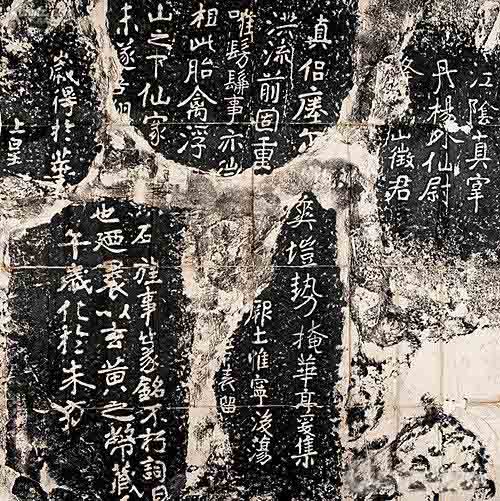 江陰真宰
丹楊外仙尉
仙徵君
真侶瘞爾
洪流前固重
唯髣髴事亦
相此胎禽浮
山之下仙家
未遂吾翔
歲得於華
上皇
爽塏勢掩華亭爰集
厥土惟寧後蕩
表留
石旌事篆銘不朽詞曰
也廼裹以玄黃之幣藏
午歲化於朱方